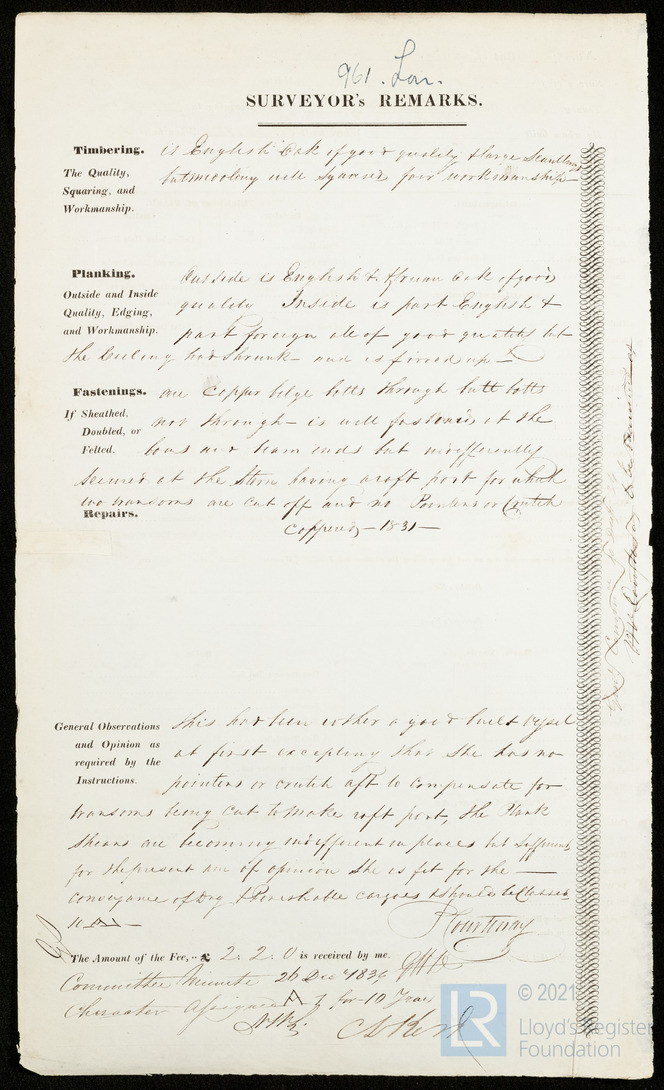 961. Lon.
SURVEYOR's REMARKS.
Timbering. is English Oak of good quality & large Scantlings
The Quality, Squaring, and Workmanship. but well squared fair workmanship
Planking. Outside is English & African Oak of good
Outside and Inside quality Inside is part English &
Quality, Edging, and Workmanship. part foreign all of good quality but
the Ceiling has shrunk and is firred up
Fastenings. are Copper bilge bolts through butt bolts
If Sheathed, not through is well fastened at the
Doubled, or Felted. bows and beam ends but indifferently
secured at the Stern having a raft port for which
two transoms are cut off and no Pointers or Crutch
Repairs.
Coppered 1831
General Observations this has been rather a good built Vessel
and Opinion as at first excepting that she has no
required by the Instructions. pointers or crutch aft to compensate for
transoms being cut to make raft port, the Plank
are becoming indifferent in places but sufficient
for the present am of opinion she is fit for the
conveyance of Dry & Perishable cargoes & should be Classed
10 A
Courtenay
The Amount of the Fee, £ 2. 2. 0 is received by me.
Committee Minute 26 Decr 1834
Character Assigned A 1 for 10 Years
© 2021
LR
Lloyd's Register
Foundation